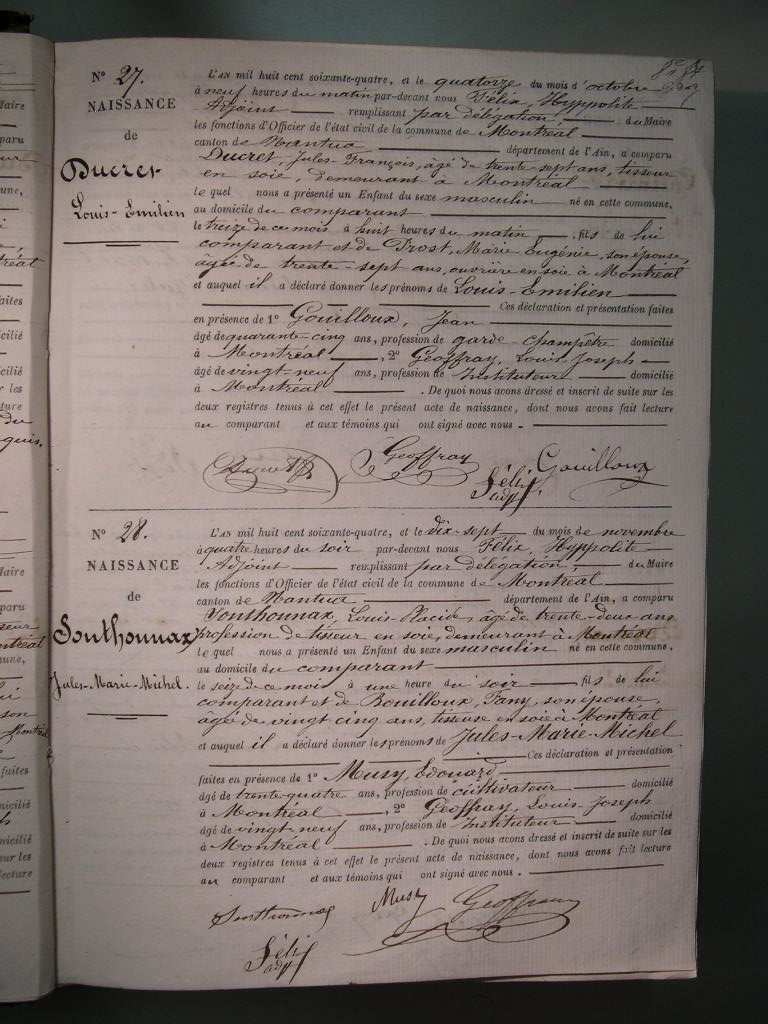 N° 27.
NAISSANCE
de
Ducret
Louis-Emilien
L'AN mil huit cent soixante-quatre, et le quatorze du mois d'octobre
à neuf heures du matin par-devant nous Félix, Hyppolite
Adjoint remplissant par délégation, du Maire
les fonctions d'Officier de l'état civil de la commune de Montréal
canton de Nantua département de l'Ain, a comparu
Ducret, Jules-François, âgé de trente-sept ans, tisseur
en soie, demeurant à Montréal
lequel nous a présenté un Enfant du sexe masculin né en cette commune,
au domicile du comparant
le treize de ce mois à huit heures du matin, fils de lui
comparant et de Prost, Marie Eugénie, son épouse,
âgée de trente-sept ans, ouvrière en soie à Montréal
et auquel il a déclaré donner les prénoms de Louis-Emilien
Ces déclaration et présentation faites
en présence de 1° Gouilloux, Jean
âgé de quarante-cinq ans, profession de garde-champêtre domicilié
à Montréal, 2° Geoffray, Louis-Joseph
âgé de vingt-neuf ans, profession de Instituteur domicilié
à Montréal. De quoi nous avons dressé et inscrit de suite sur les
deux registres tenus à cet effet le présent acte de naissance, dont nous avons fait lecture
au comparant et aux témoins qui ont signé avec nous.
Ducret Geoffray Gouilloux
Félix
adjt
N° 28.
NAISSANCE
de
Sonthonnax
Jules-Marie-Michel.
L'AN mil huit cent soixante-quatre, et le dix-sept du mois de novembre
à quatre heures du soir par-devant nous Félix, Hyppolite
Adjoint remplissant par délégation, du Maire
les fonctions d'Officier de l'état civil de la commune de Montréal
canton de Nantua département de l'Ain, a comparu
Sonthonnax, Louis-Placide, âgé de trente-deux ans
profession de tisseur en soie, demeurant à Montréal
lequel nous a présenté un Enfant du sexe masculin né en cette commune,
au domicile du comparant
le seize de ce mois à une heure du soir fils de lui
comparant et de Bouilloux, Fany, son épouse,
âgée de vingt cinq ans, tisseuse en soie à Montréal
et auquel il a déclaré donner les prénoms de Jules-Marie-Michel
Ces déclaration et présentation
faites en présence de 1° Musy, Edouard
âgé de trente-quatre ans, profession de cultivateur domicilié
à Montréal, 2° Geoffray, Louis-Joseph
âgé de vingt-neuf ans, profession de Instituteur domicilié
à Montréal. De quoi nous avons dressé et inscrit de suite sur les
deux registres tenus à cet effet le présent acte de naissance, dont nous avons fait lecture
au comparant et aux témoins qui ont signé avec nous.
Sonthonnax Musy Geoffray
Félix
adjt